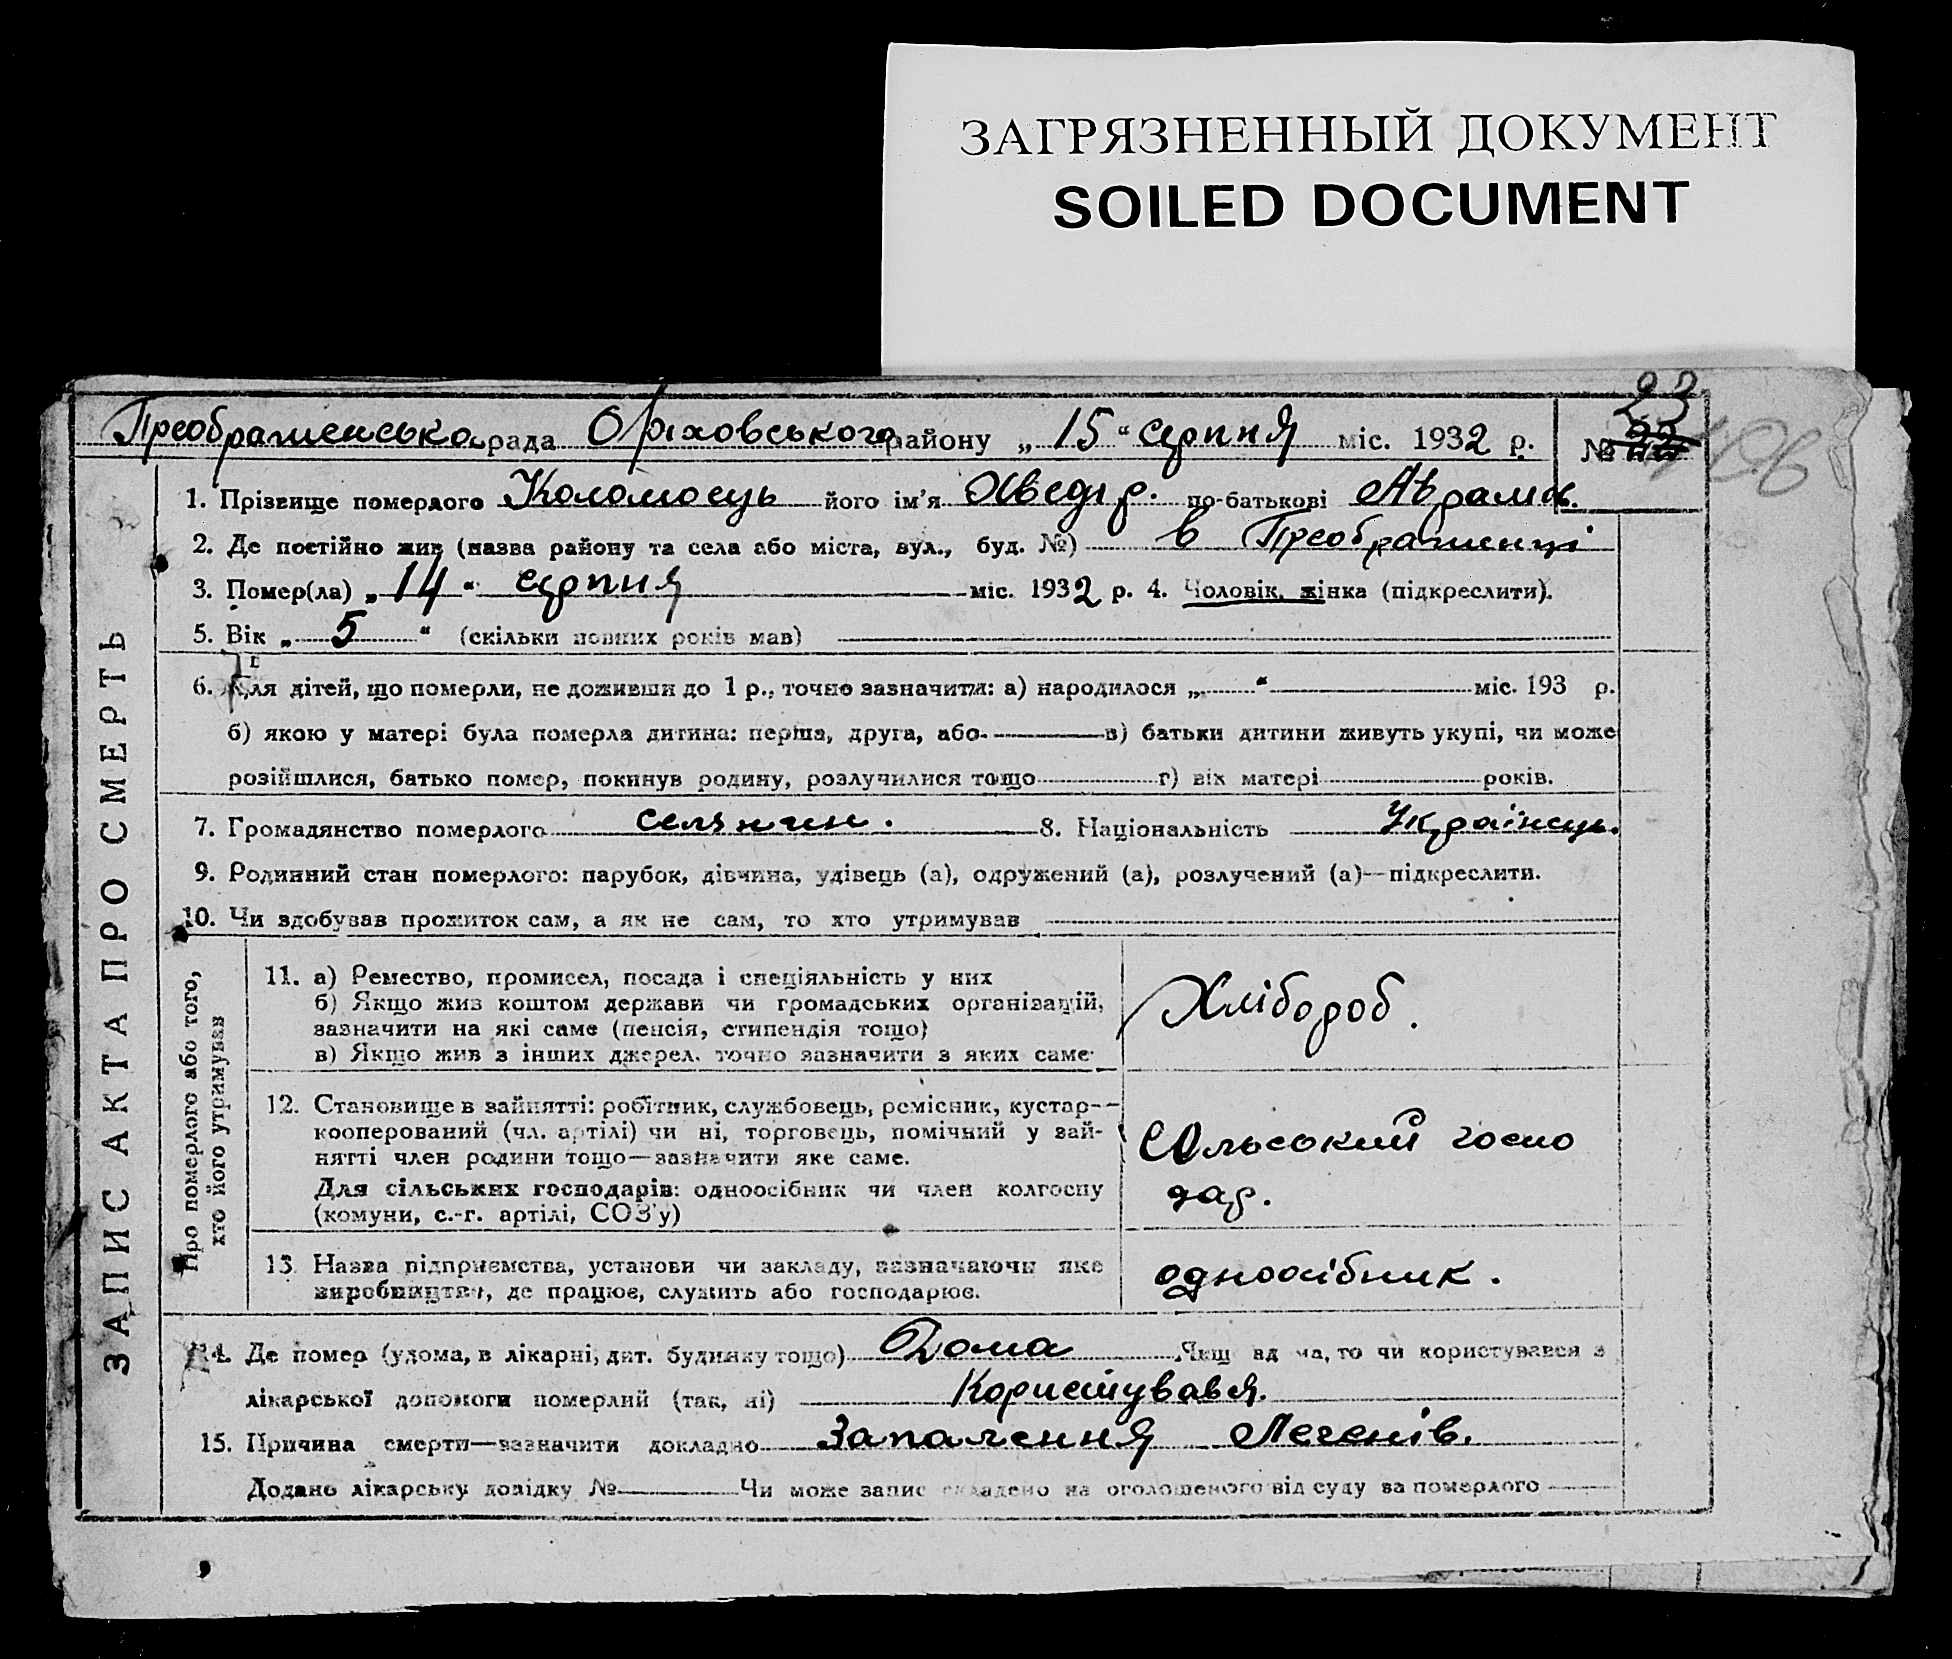 ЗАГРЯЗНЕННЫЙ ДОКУМЕНТ
SOILED DOCUMENT
Преображенська рада Оріховського району „ 15 “ серпня міс. 1932 р. № 23
1. Прізвище померлого Коломоєць його ім’я Хведір. по-батькові Аврамов.
2. Де постійно жив (назва району та села або міста, вул., буд. №) в Преображенці
3. Помер(ла) „ 14 “ серпня міс. 1932 р. 4. Чоловік, жінка (підкреслити).
5. Вік „ 5 “ (скільки повних років мав)
6. Для дітей, що померли, не доживши до 1 р., точно зазначити: а) народилося „ “ міс. 193 р.
б) якою у матері була померла дитина: перша, друга, або в) батьки дитини живуть укупі, чи може
розійшлися, батько помер, покинув родину, розлучилися тощо г) вік матері років.
7. Громадянство померлого селянин. 8. Національність Українець.
9. Родинний стан померлого: парубок, дівчина, удівець (а), одружений (а), розлучений (а)—підкреслити.
10. Чи здобував прожиток сам, а як не сам, то хто утримував
ЗАПИС АКТА ПРО СМЕРТЬ
Про померлого або того,
хто його утримував
11. а) Ремество, промисел, посада і спеціяльність у них
б) Якщо жив коштом держави чи громадських організацій,
зазначити на які саме (пенсія, стипендія тощо)
в) Якщо жив з інших джерел, точно зазначити з яких саме
Хлібороб.
12. Становище в зайнятті: робітник, службовець, ремісник, кустар—
кооперований (чл. артілі) чи ні, торговець, помічний у зай-
нятті член родини тощо—зазначити яке саме.
Для сільських господарів: одноосібник чи член колгоспу
(комуни, с.-г. артілі, СОЗ’у)
Сільський госпо
дар.
13. Назва підприємства, установи чи закладу, зазначаючи яке
виробництво, де працює, служить або господарює.
одноосібник.
14. Де помер (удома, в лікарні, дит. будинку тощо) Дома Якщо вдома, то чи користувався з
лікарської допомоги померлий (так, ні) Користувався.
15. Причина смерти—зазначити докладно Запалення Легенів.
Додано лікарську довідку № Чи може запис складено на оголошеного від суду за померлого